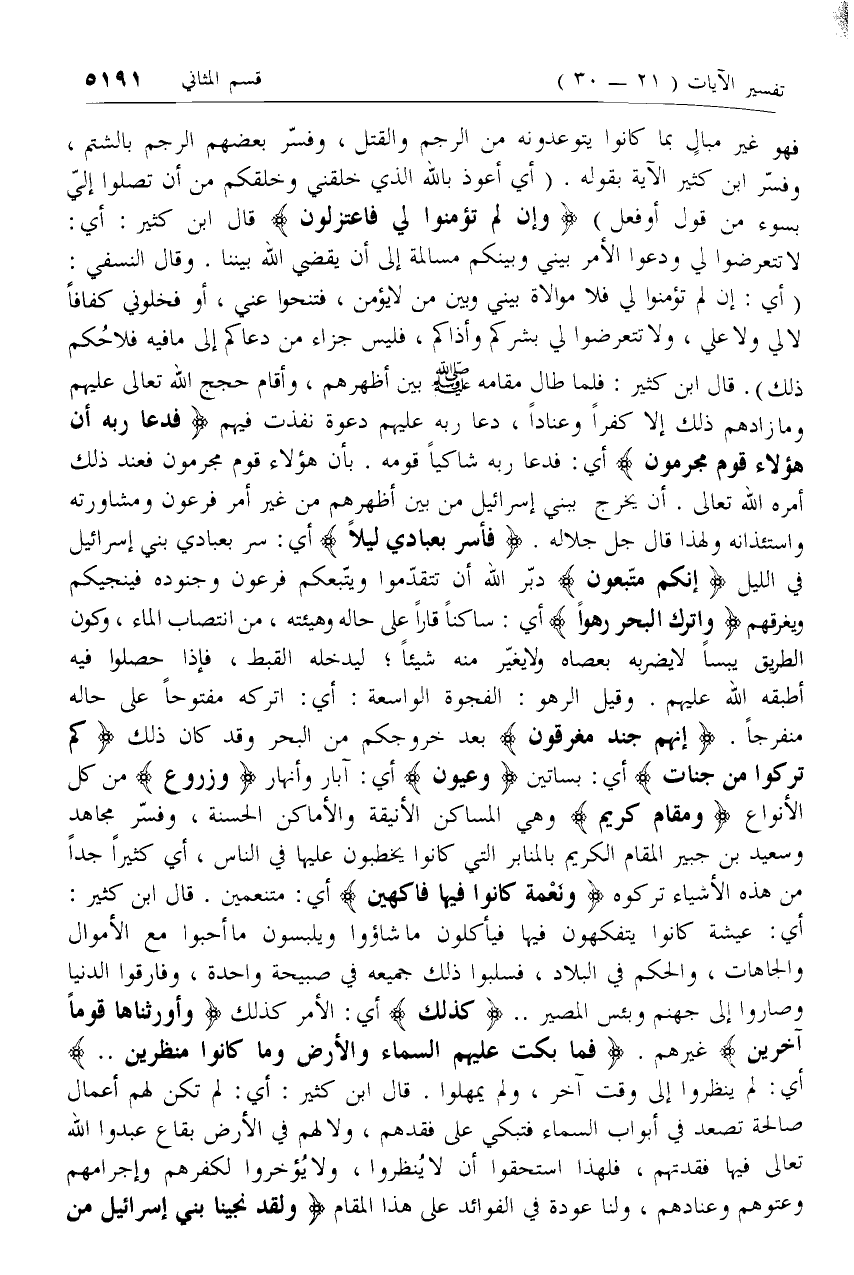 تفسير الآيات ( ٢١ — ٣٠ ) قسم المثاني ٥١٩١
فهو غير مبالٍ بما كانوا يتوعدونه من الرجم والقتل ، وفسّر بعضهم الرجم بالشتم ،
وفسّر ابن كثير الآية بقوله . ( أي أعوذ بالله الذي خلقني وخلقكم من أن تصلوا إليّ
بسوء من قول أوفعل ) ﴿ وإن لم تؤمنوا لي فاعتزلون ﴾ قال ابن كثير : أي :
لاتتعرضوا لي ودعوا الأمر بيني وبينكم مسالمة إلى أن يقضي الله بيننا . وقال النسفي :
( أي : إن لم تؤمنوا لي فلا موالاة بيني وبين من لايؤمن ، فتنحوا عني ، أو فخلوني كفافاً
لالي ولاعلي ، ولاتتعرضوا لي بشركم وأذاكم ، فليس جزاء من دعاكم إلى مافيه فلاحُكم
ذلك ) . قال ابن كثير : فلما طال مقامه ﷺ بين أظهرهم ، وأقام حجج الله تعالى عليهم
ومازادهم ذلك إلا كفراً وعناداً ، دعا ربه عليهم دعوة نفذت فيهم ﴿ فدعا ربه أن
هؤلاء قوم مجرمون ﴾ أي : فدعا ربه شاكياً قومه . بأن هؤلاء قوم مجرمون فعند ذلك
أمره الله تعالى . أن يخرج ببني إسرائيل من بين أظهرهم من غير أمر فرعون ومشاورته
واستئذانه ولهذا قال جل جلاله . ﴿ فأسر بعبادي ليلاً ﴾ أي : سر بعبادي بني إسرائيل
في الليل ﴿ إنكم متّبعون ﴾ دبّر الله أن تتقدّموا ويتّبعكم فرعون وجنوده فينجيكم
ويغرقهم ﴿ واترك البحر رهواً ﴾ أي : ساكناً قاراً على حاله وهيئته ، من انتصاب الماء ، وكون
الطريق يبساً لايضربه بعصاه ولايغيّر منه شيئاً ؛ ليدخله القبط ، فإذا حصلوا فيه
أطبقه الله عليهم . وقيل الرهو : الفجوة الواسعة : أي : اتركه مفتوحاً على حاله
منفرجاً . ﴿ إنهم جند مغرقون ﴾ بعد خروجكم من البحر وقد كان ذلك ﴿ كم
تركوا من جنات ﴾ أي : بساتين ﴿ وعيون ﴾ أي : آبار وأنهار ﴿ وزروع ﴾ من كل
الأنواع ﴿ ومقام كريم ﴾ وهي المساكن الأنيقة والأماكن الحسنة ، وفسّر مجاهد
وسعيد بن جبير المقام الكريم بالمنابر التي كانوا يخطبون عليها في الناس ، أي كثيراً جداً
من هذه الأشياء تركوه ﴿ ونَعْمة كانوا فيها فاكهين ﴾ أي : متنعمين . قال ابن كثير :
أي : عيشة كانوا يتفكهون فيها فيأكلون ماشاؤوا ويلبسون ماأحبوا مع الأموال
والجاهات ، والحكم في البلاد ، فسلبوا ذلك جميعه في صبيحة واحدة ، وفارقوا الدنيا
وصاروا إلى جهنم وبئس المصير .. ﴿ كذلك ﴾ أي : الأمر كذلك ﴿ وأورثناها قوماً
آخرين ﴾ غيرهم . ﴿ فما بكت عليهم السماء والأرض وما كانوا منظرين .. ﴾
أي : لم ينظروا إلى وقت آخر ، ولم يمهلوا . قال ابن كثير : أي : لم تكن لهم أعمال
صالحة تصعد في أبواب السماء فتبكي على فقدهم ، ولالهم في الأرض بقاع عبدوا الله
تعالى فيها فقدتهم ، فلهذا استحقوا أن لايُنظروا ، ولايُؤخروا لكفرهم وإجرامهم
وعتوهم وعنادهم ، ولنا عودة في الفوائد على هذا المقام ﴿ ولقد نجينا بني إسرائيل من